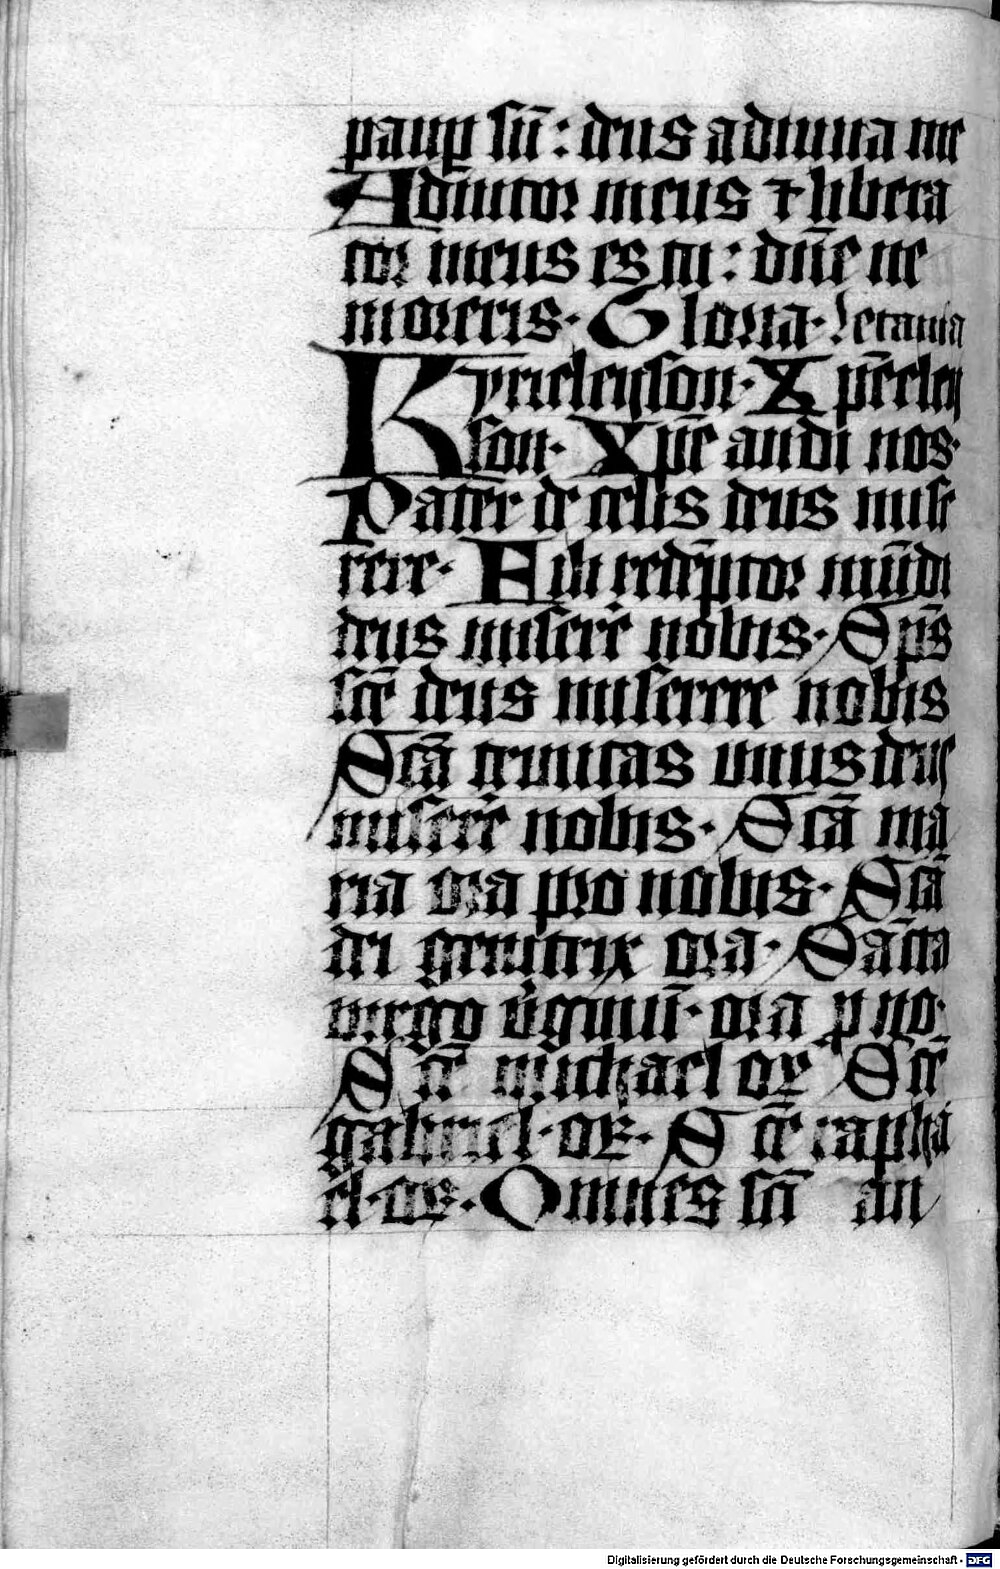 paup sū : deus adiuua me
Adiutor meus ⁊ libera
tor meus es tu : dn̄e ne
moreris · Gloria · letania
Kyrieleyson · Xp̄eeley
son · Xp̄e audi nos ·
Pater de celis deus mise
rere · Fili redēptor mūdi
deus miserē nobis · Sp̄s
sc̄e deus miserere nobis
Sc̄a trinitas unus deus
miserē nobis · Sc̄a ma
ria ora pro nobis · Sc̄a
dei genitrix ora · Sācta
virgo v̄ginū · ora p no ·
Sc̄e michael or Sc̄e
gabriel · or · Sc̄e rapha
el · or · Omnes sc̄i an
Digitalisierung gefördert durch die Deutsche Forschungsgemeinschaft - DFG